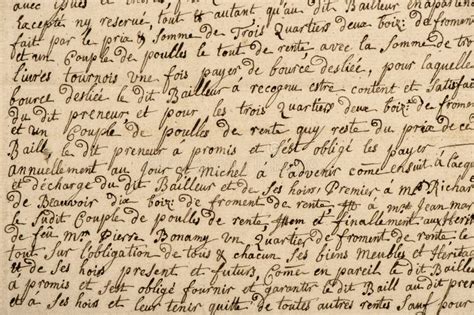 avec
excepté ny reserve, tout et autant qu'au dit Bailleur en
fait par le prix & Somme de Trois Quartiers deux boiz: de froment
et un Couple de poulles le tout de rente, avec la Somme de
livres tournois une fois payer de bource desliée, pour laquelle
bource desliée le dit Bailleur a recognu estre content et Satisfait
du dit preneur, et pour les trois Quartiers deux boiz: de froment
et un Couple de poulles de rente quy reste du prix de ce
Baill, le dit preneur à promis et s'est obligé les payer
annuellement au Jour St Michel à l'advenir come ensuit à l'acq
et décharge du dit Bailleur et de Ses hoirs Premier à Mr Richard
de Beauvoir dix boiz: de froment de rente, Item à Mr Jean
le Sudit Couple de poulles de rente, Item et finallement aux
de feû Mr Pierre Bonamy un Quartier de froment de rente le
tout Sur l'obligation de tous & chacun Ses biens Meubles et Heritages
et de Ses hoirs present et futurs, Come en pareil le dit Bailleur
à promis et s'est obligé fournir et garantir le dit Baill au dit preneur
et à Ses hoirs et leur tenir quitte de toutes autres rentes Sauf pour